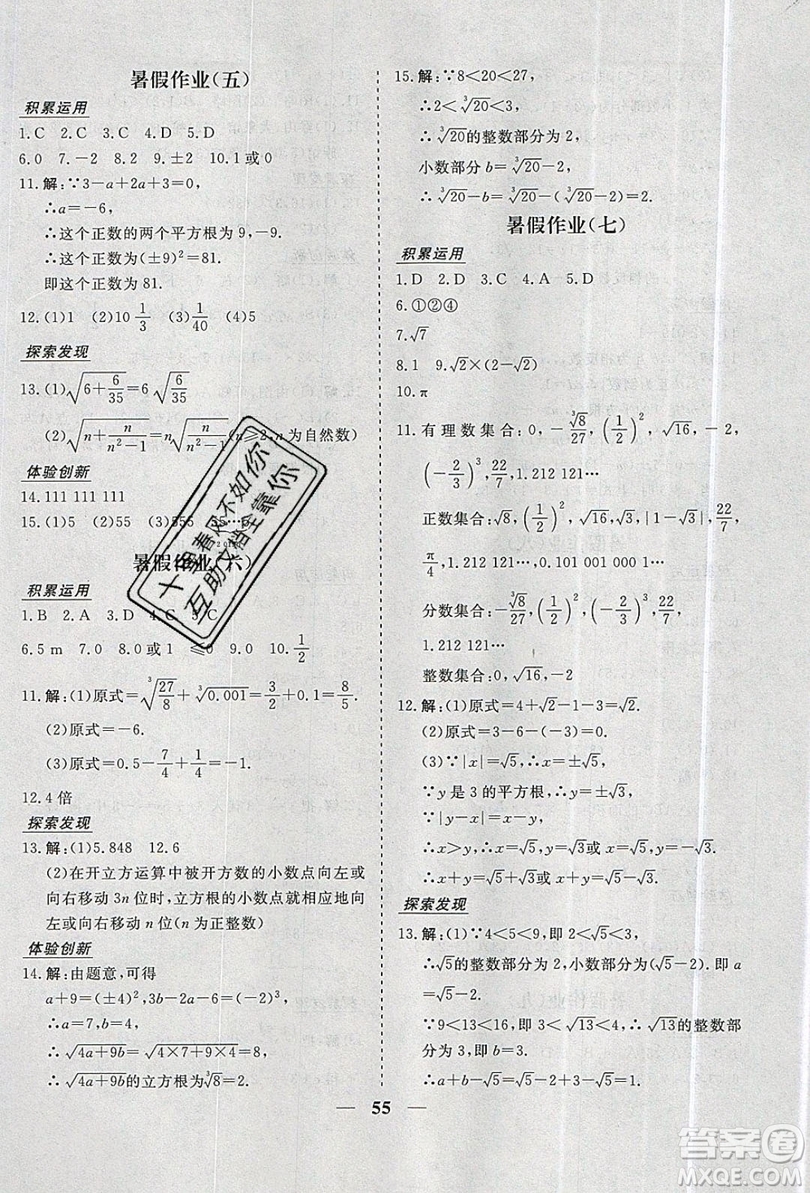 暑假作业(五)
积累运用
1.C 2.C 3.C 4.D 5.D
6.0 7.-2 8.2 9.±2 10.1或0
11.解:∵3-a+2a+3=0,
∴a=-6,
∴这个正数的两个平方根为9,-9.
∴这个正数为(±9)²=81.
即这个正数为81.
12.(1)1 (2)10 1/3 (3)1/40 (4)5
探索发现
13.(1)√(6+6/35)=6√(6/35)
(2)√(n+n/(n²-1))=n√(n/(n²-1))(n≥2,n为自然数)
体验创新
14.111 111 111
15.(1)5 (2)55 (3)555
暑假作业(六)
积累运用
1.B 2.A 3.D 4.C 5.C
6.5 m 7.0 8.0或1 9.0 10.1/2
11.解:(1)原式=∛(27/8)+∛0.001=3/2+0.1=8/5.
(2)原式=-6.
(3)原式=0.5-7/4+1/4=-1.
12.4倍
探索发现
13.解:(1)5.848 12.6
(2)在开立方运算中被开方数的小数点向左或
向右移动3n位时,立方根的小数点就相应地向
左或向右移动n位(n为正整数)
体验创新
14.解:由题意,可得
a+9=(±4)²,3b-a=(-2)³,
∴a=7,
∴√(4a+9b)=√(4×7+9×4)=8,
∴√(4a+9b)的立方根为∛8=2.
15.解:∵8<20<27,
∴2<∛20<3,
∴∛20的整数部分为2,
小数部分为∛20-2,
∴∛20-b=∛20-(∛20-2)=2.
暑假作业(七)
积累运用
1.D 2.D 3.C 4.A 5.D
6.①②④
7.√7
8.1 9.√2×(2-√2)
10.π
11.有理数集合:0,-∛8/27,(1/2)²,√16,-2,
(-2/3)³,22/7,1.212 121…
正数集合:√8,(1/2)²,√16,√3,|1-√3|,22/7,
π/4,1.212 121…,0.101 001 000 1…
分数集合:-∛8/27,(1/2)²,(-2/3)³,22/7,
1.212 121…
整数集合:0,√16,-2
12.解:(1)原式=4+√2-1-3=√2.
(2)原式=3-6-(-3)=0.
(3)∵|x|=√5,∴x=±√5,
∵y是3的平方根,∴y=±√3,
∵|y-x|=x-y,
∴x>y,∴x=√5,y=√3或x=√5,y=-√3,
∴x+y=√5+√3或x+y=√5-√3.
探索发现
13.解:(1)∵4<5<9,即2<√5<3,
∴√5的整数部分为2,小数部分为√5-2,即a
=√5-2.
∵9<13<16,即3<√13<4,∴√13的整数部
分为3,即b=3.
∴a+b-√5=√5-2+3-√5=1.
55
十里春风不如你
互助文档全靠你
答案圈
MXQE.COM